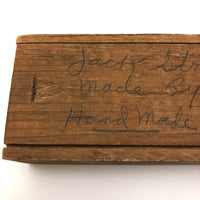 Jack Str
Made By
Hand Made